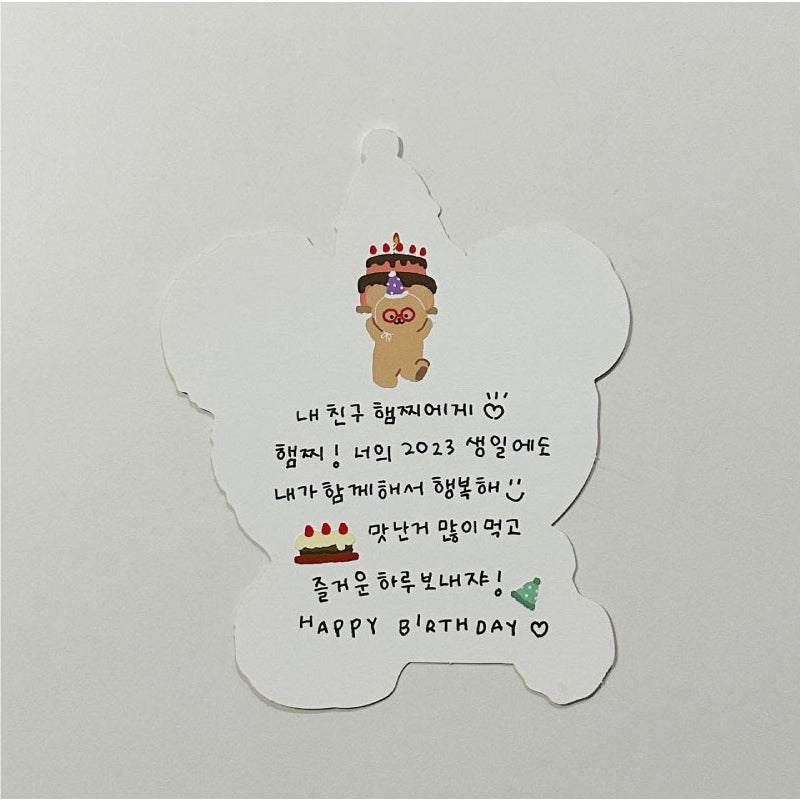 내 친구 햄찌에게 ♡
햄찌! 너의 2023 생일에도
내가 함께해서 행복해
맛난거 많이 먹고
즐거운 하루 보내쟈!
HAPPY BIRTHDAY ♡